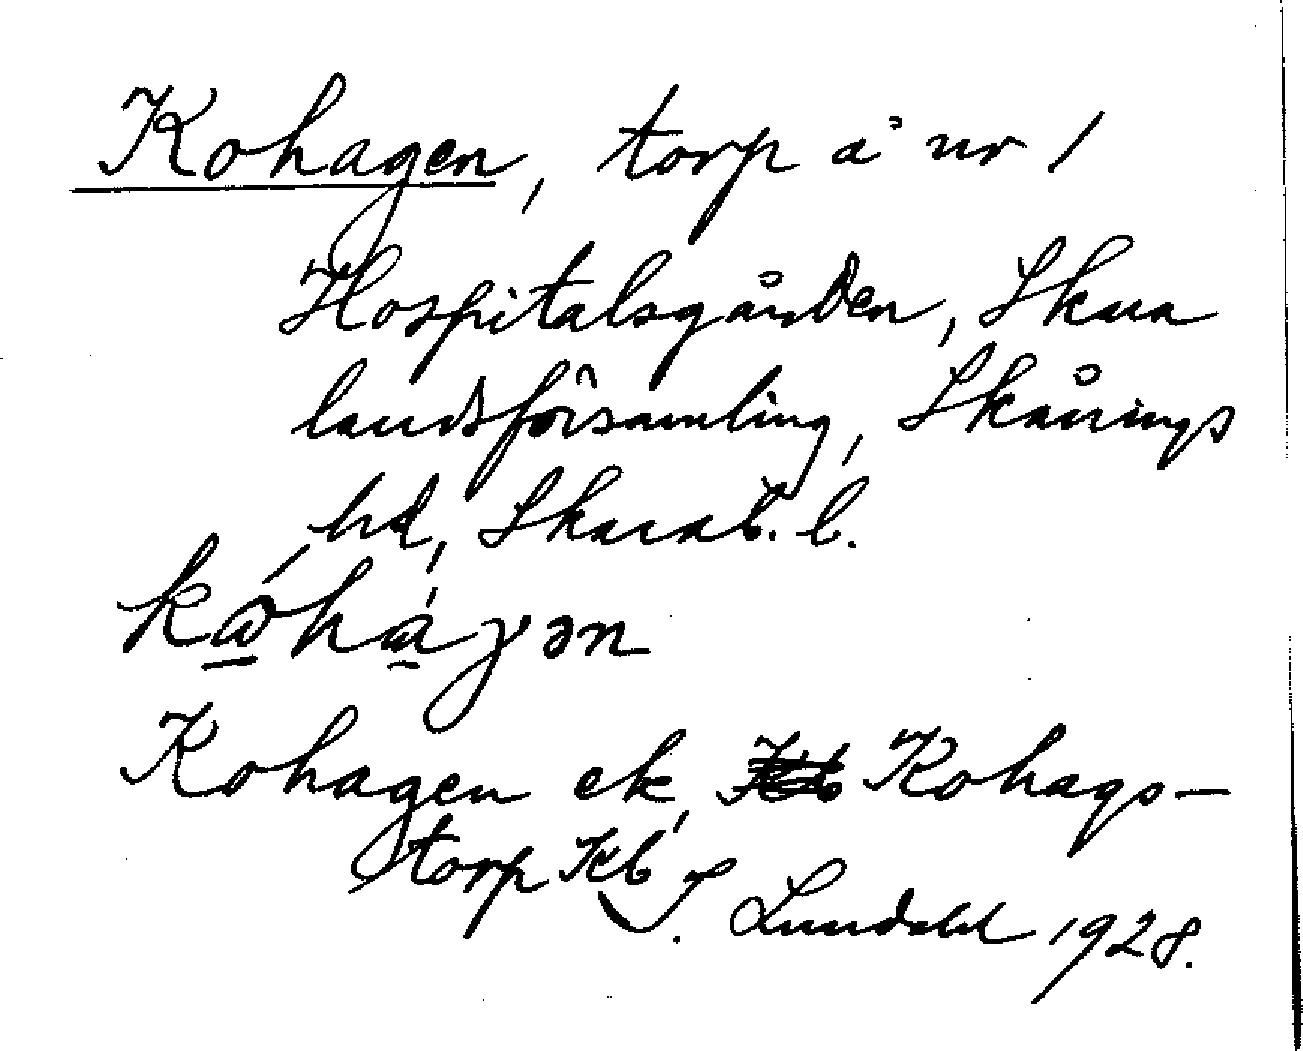 Kohagen, torp å nr 1
Hospitalsgården, Skara
landsförsamling, Skånings
hd, Skarab. l.
kώ̲há̲γən
Kohagen ek, Kohags-
torp Kb
J. Lundahl 1928.